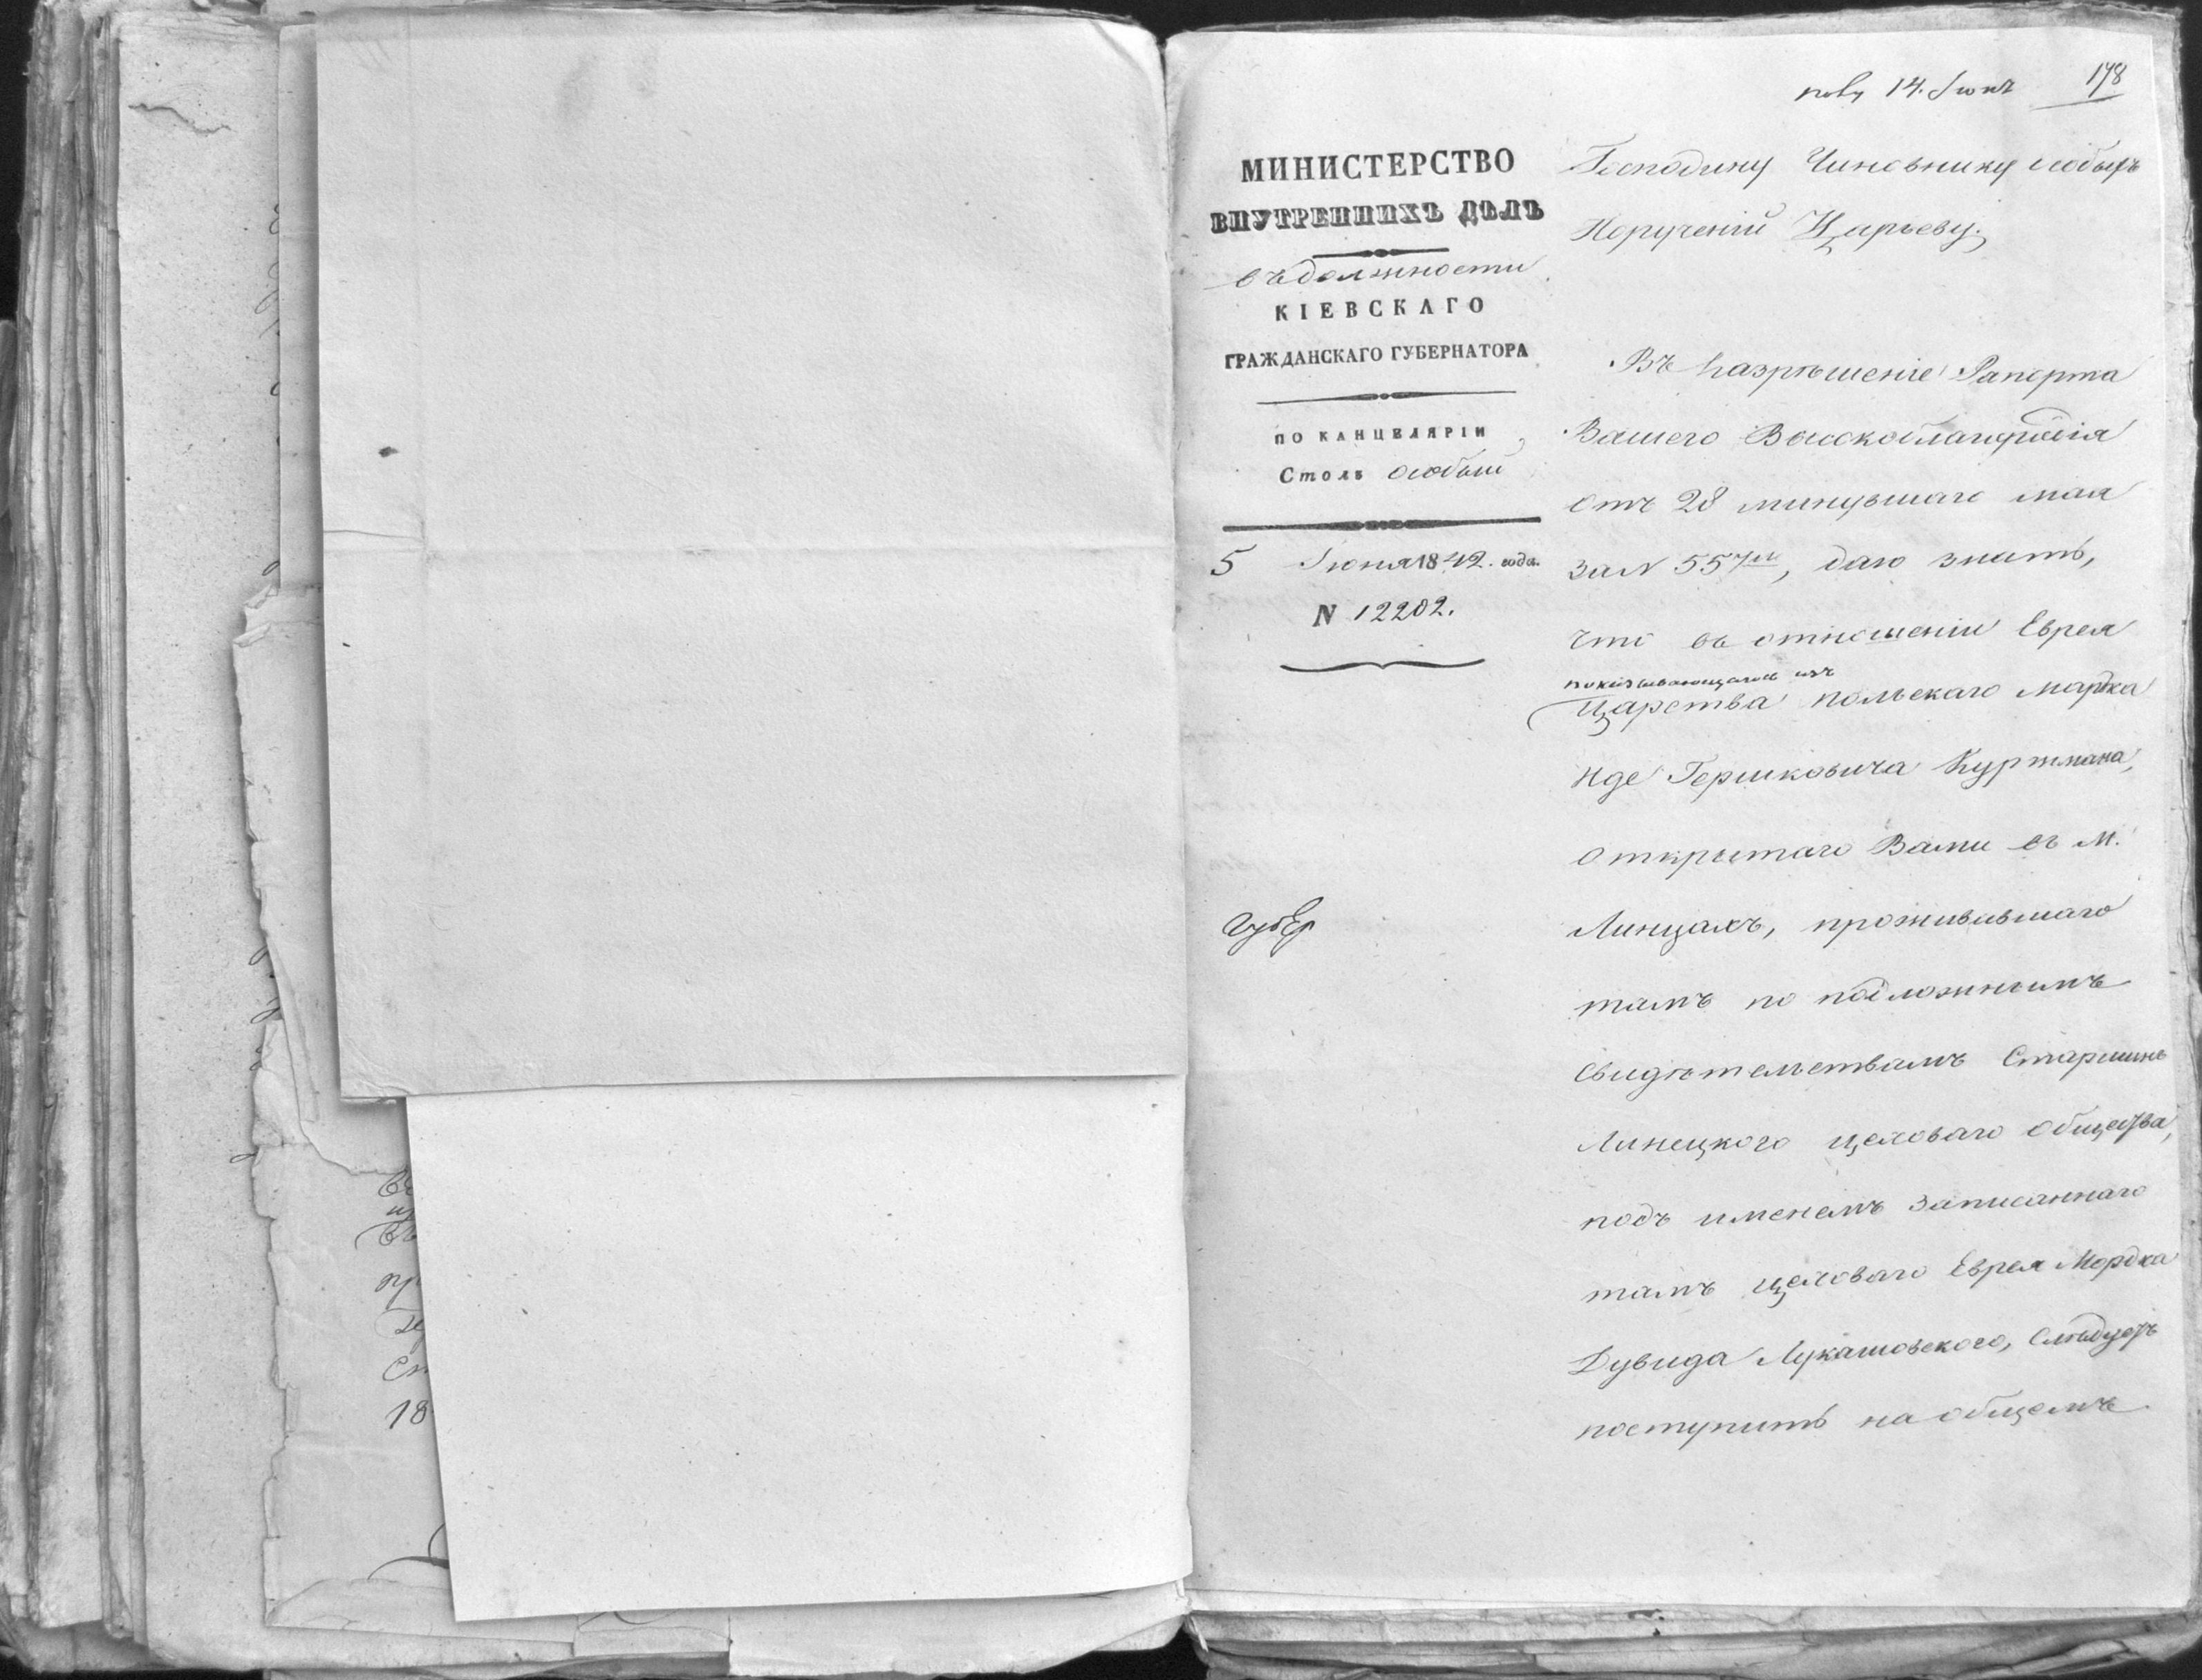 178
14. Июня
МИНИСТЕРСТВО
ВНУТРЕННИХЪ ДѢЛЪ
въ должности
КІЕВСКАГО
ГРАЖДАНСКАГО ГУБЕРНАТОРА
ПО КАНЦЕЛЯРІИ
Столъ Особый
5 Июня 1842. года.
N 12202.
Господину Чиновнику особыхъ
Порученій Царьеву.
Въ Разрѣшеніе Рапорта
Вашего Высокоблагородія
отъ 28 минувшаго мая
за N 557м, даю знать,
что въ отношеніи Еврея
показывающагося изъ
Царства Польскаго Мордка
Иде Гершковича Куртмана,
открытаго Вами въ М.
Линцахъ, проживавшаго
тамъ по подложнымъ
свидѣтельствамъ Старшинъ
Линецкого цеховаго общества,
подъ именемъ записаннаго
тамъ цеховаго Еврея Мордка
Дувида Лукашовского, слѣдуетъ
поступить на общемъ
Во
въ
пр
Ст
18